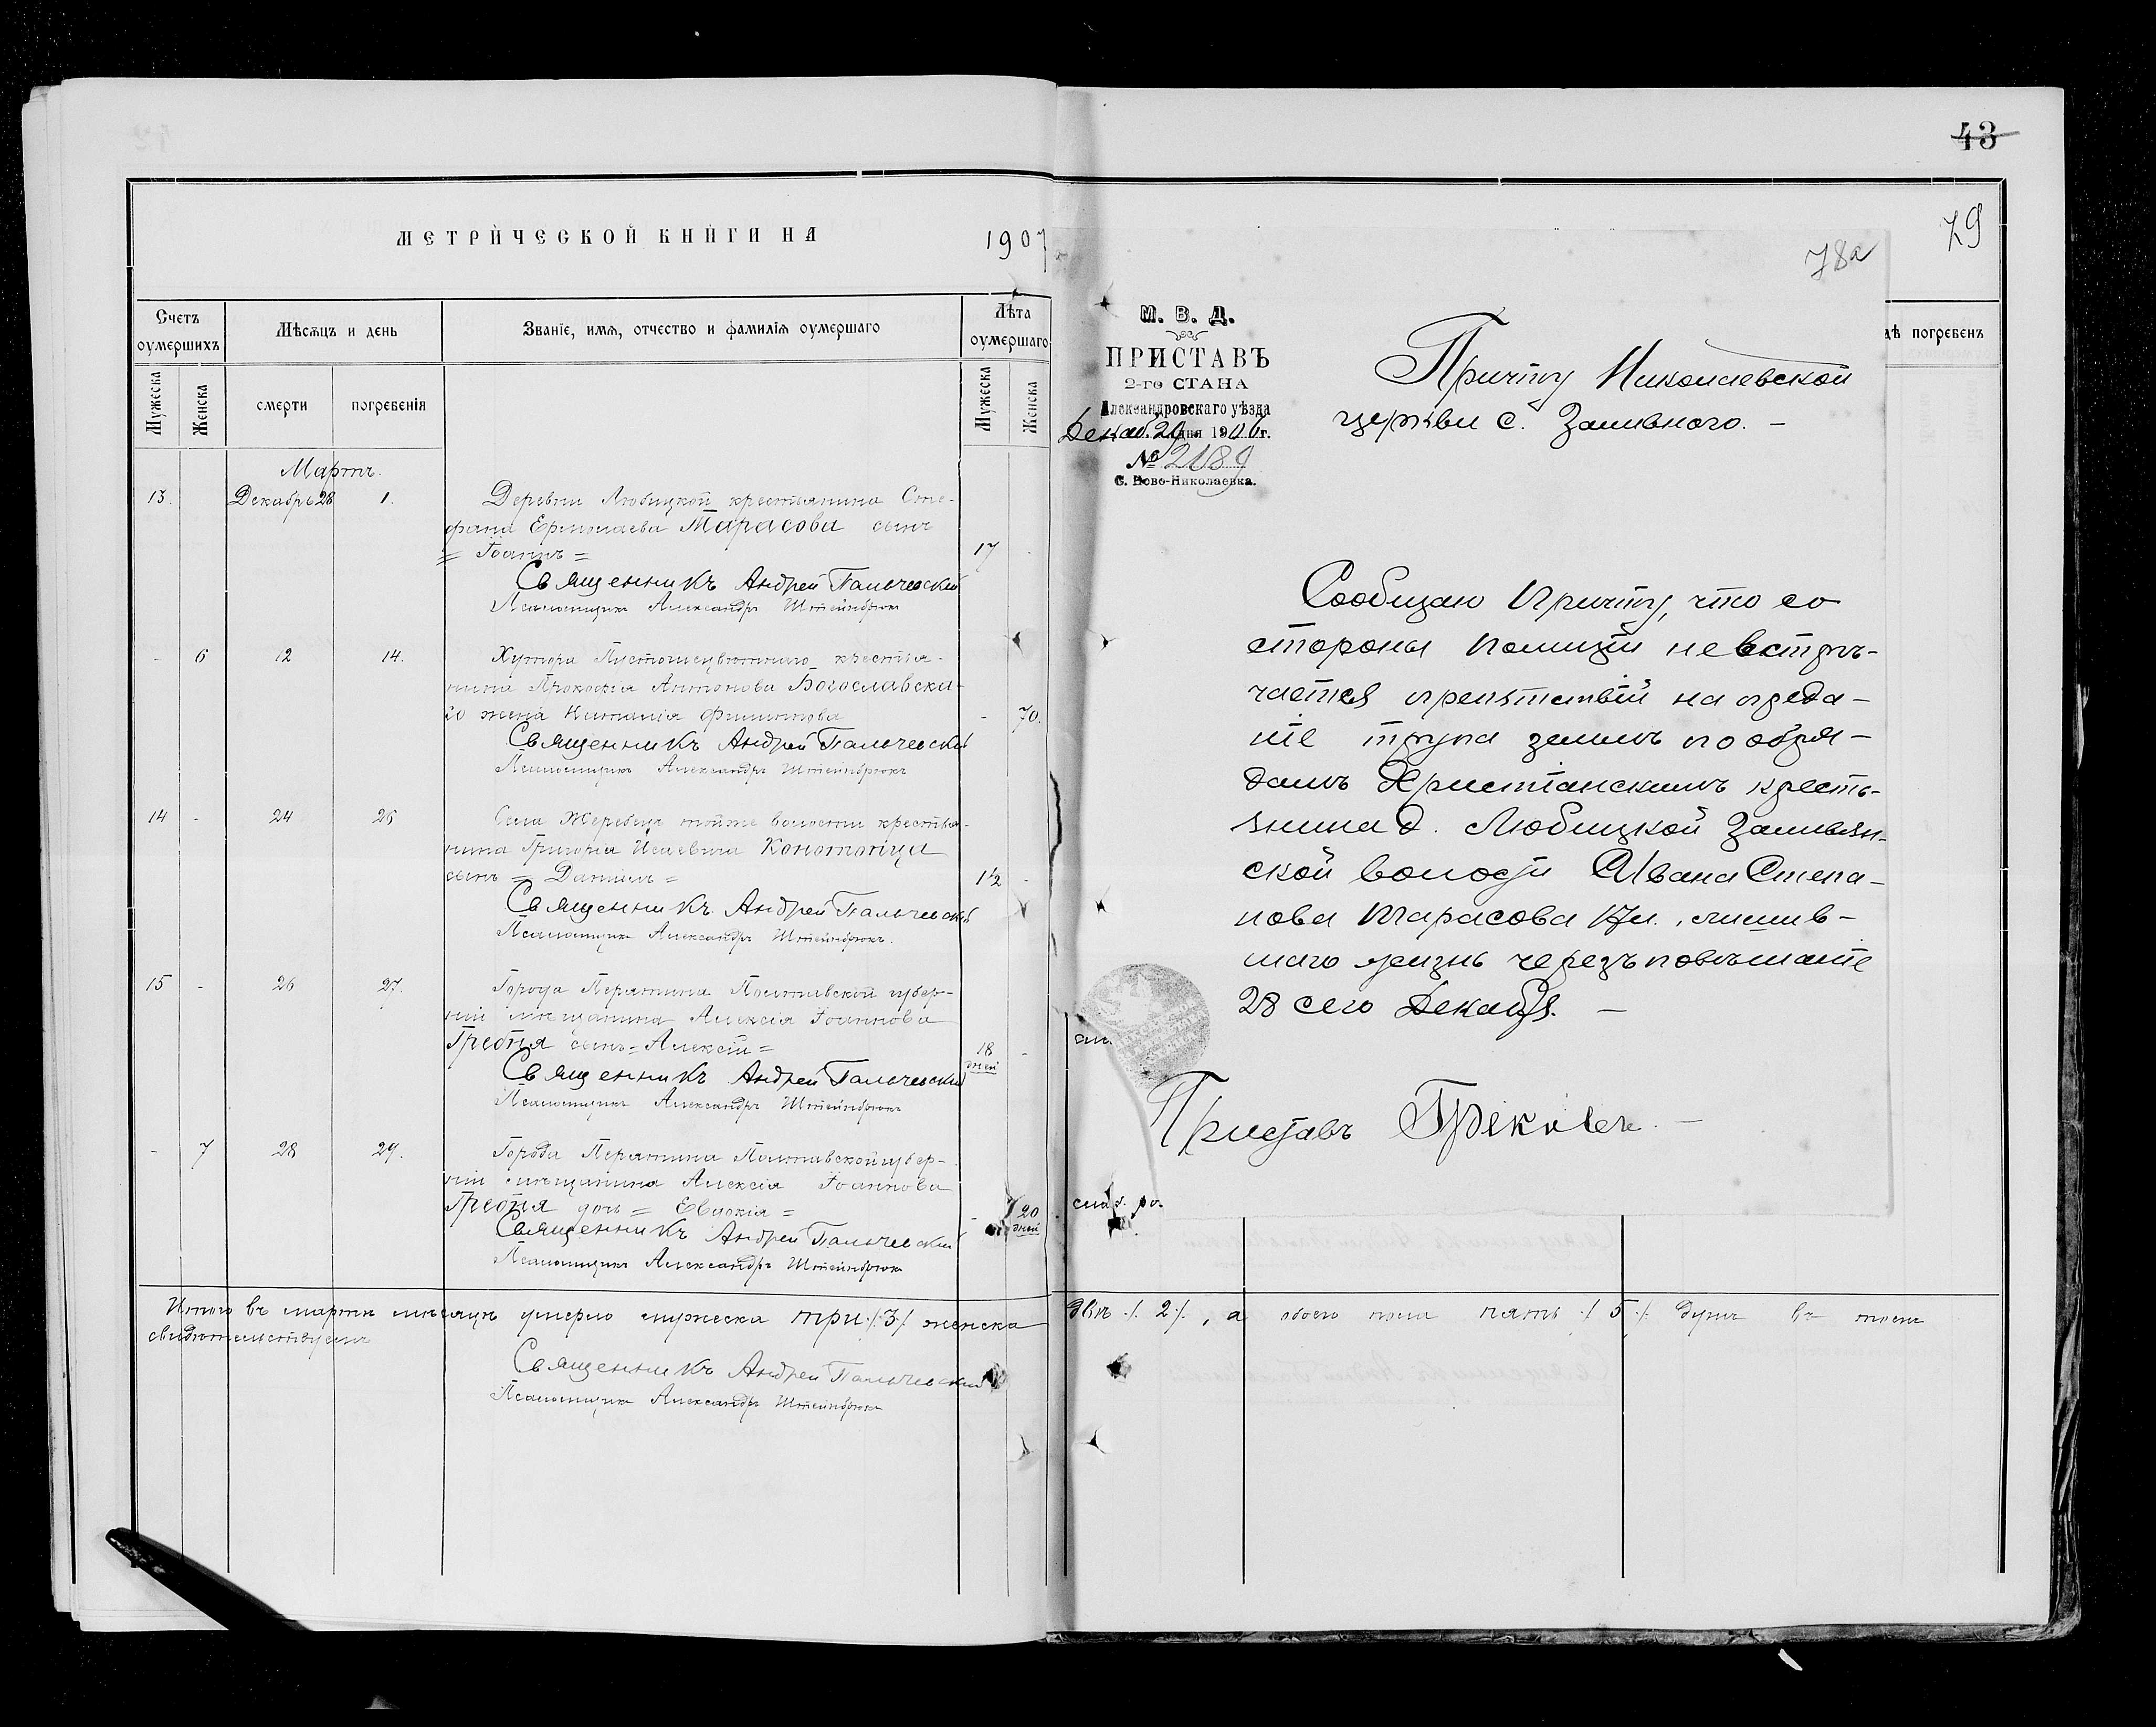 43
МЕТРИЧЕСКОЙ КНИГИ НА 1907
79
78а
Счетъ оумершихъ
Мѣсяцъ и день
Званіе, имя, отчество и фамилія оумершаго
Лѣта оумершаго
дѣ погребенъ
Мужеска
Женска
смерти
погребенія
Мужеска
Женска
Мартъ.
13. Декабрь 28 1. Деревни Любицкой крестьянина Сте-
фана Ермолаева Тарасова сынъ
= Іоаннъ = 17 -
Священникъ Андрей Пальчевскій
Псаломщикъ Александръ Штейнбрюкъ
- 6 12 14. Хутора крестья-
нина Прокофія Антонова Богославска-
го жена Наталія Филиппова - 70.
Священникъ Андрей Пальчевскій
Псаломщикъ Александръ Штейнбрюкъ
14 - 24 26 Села Жеребца тойже волости крестья-
нина Григорія Исаевича Конотопца
сынъ = Даніилъ = 1½ -
Священникъ Андрей Пальчевскій
Псаломщикъ Александръ Штейнбрюкъ.
15 - 26 27. Города Пирятина Полтавской губер-
ніи мѣщанина Алексія Іоаннова
Гребня сынъ = Алексій = 18 дней -
Священникъ Андрей Пальчевскій
Псаломщикъ Александръ Штейнбрюкъ
- 7 28 29. Города Пирятина Полтавской губер-
ніи мѣщанина Алексія Іоаннова
Гребня дочь = Евдокія = - 20 дней
Священникъ Андрей Пальчевскій
Псаломщикъ Александръ Штейнбрюкъ
Итого въ мартѣ мѣсяцѣ умерло мужеска три /3/ женска двѣ /. 2 /. , а обоего пола пять /. 5 /. душъ въ томъ
свидѣтельствуемъ
Священникъ Андрей Пальчевскій
Псаломщикъ Александръ Штейнбрюкъ
М. В. Д.
ПРИСТАВЪ
2-го СТАНА
Александровскаго уѣзда
Декаб. 29 дня 1906 г.
№ 2189
С. Ново-Николаевка.
Причту Николаевской
церкви с. Заливного. -
Сообщаю Причту, что со
стороны Полиціи не встрѣ-
чается препятствій на преда-
ніе трупа землѣ по обря-
дамъ Христіанскимъ кресть-
янина д. Любицкой Заливян-
ской волости Ивана Степа-
нова Тарасова 17 л., лишив-
шаго жизнь черезъ повѣшаніе
28 сего Декабря. -
Приставъ Грековъ. -